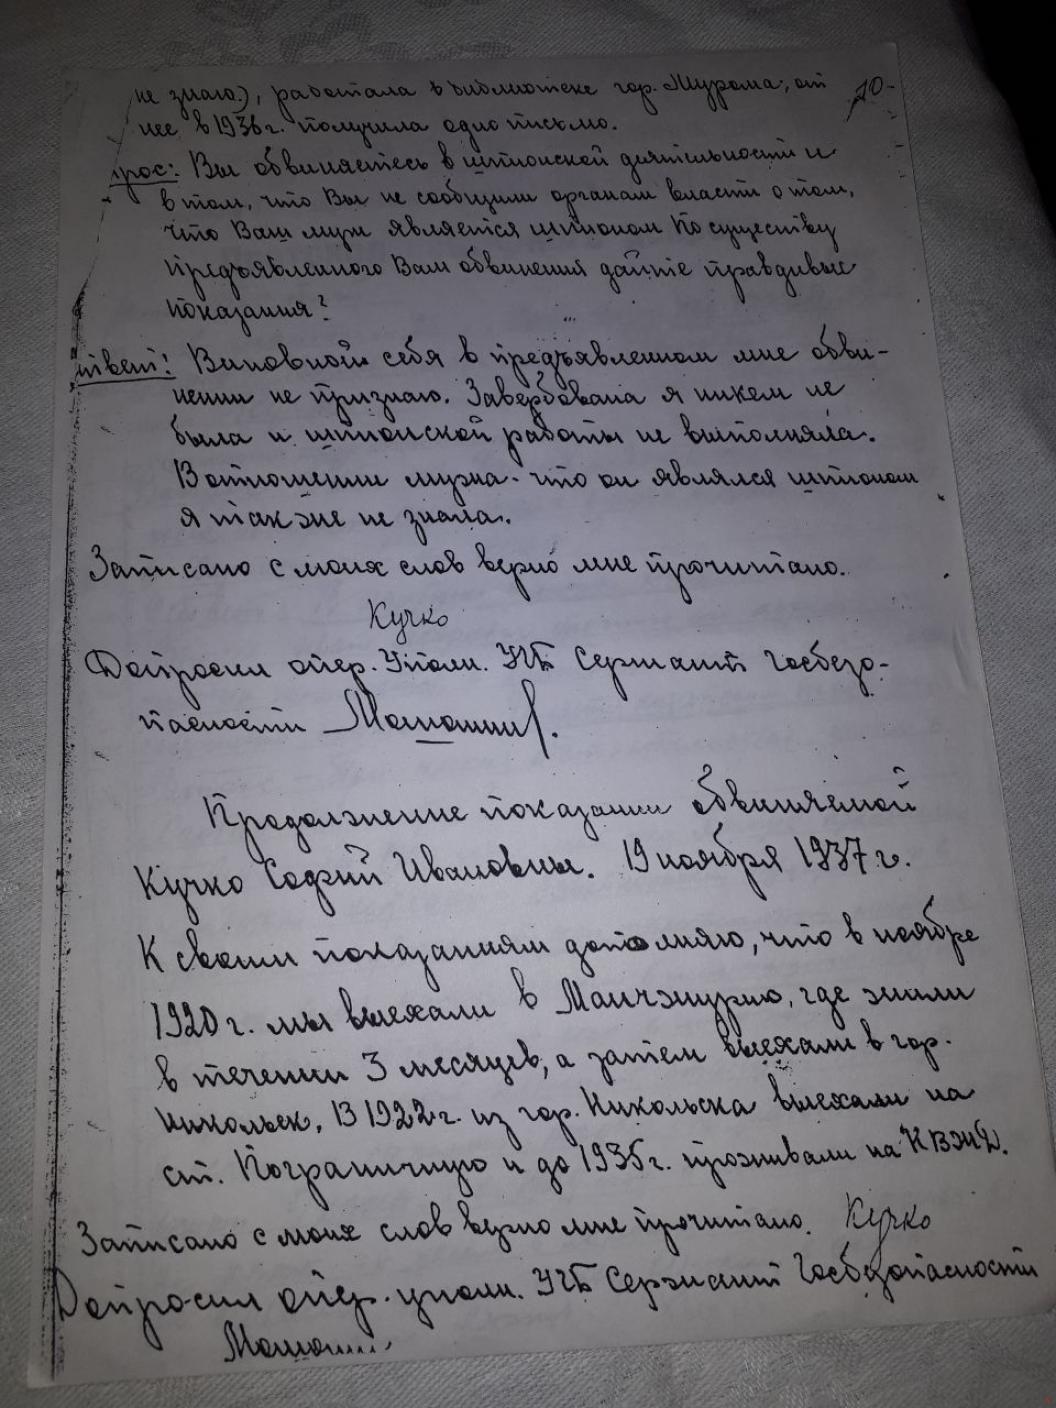 не знаю), работала в библиотеке гор. Мурома, от
нее в 1936 г. получила одно письмо.
прос: Вы обвиняетесь в шпионской деятельности и
в том, что Вы не сообщили органам власти о том,
что Ваш муж является шпионом По существу
предъявленного Вам обвинения дайте правдивые
показания?
твет: Виновной себя в предъявленном мне обви-
нении не признаю. Завербована я никем не
была и шпионской работы не выполняла.
В отношении мужа - что он являлся шпионом
я также не знала.
Записано с моих слов верно мне прочитано.
Кучко
Допросил опер. Уполн. УГБ Сержант Госбезо-
пасности
Продолжение показании обвиняемой
Кучко Софий Ивановны. 19 ноября 1937 г.
К своим показаниям дополняю, что в ноябре
1920 г. мы выехали в Манчжурию, где жили
в течении 3 месяцев, а затем выехали в гор.
Никольск. В 1922 г. из гор. Никольска выехали на
ст. Пограничную и до 1935 г. проживали на КВЖД.
Записано с моих слов верно мне прочитано. Кучко
Допросил опер. уполн. УГБ Сержант Госбезопасности